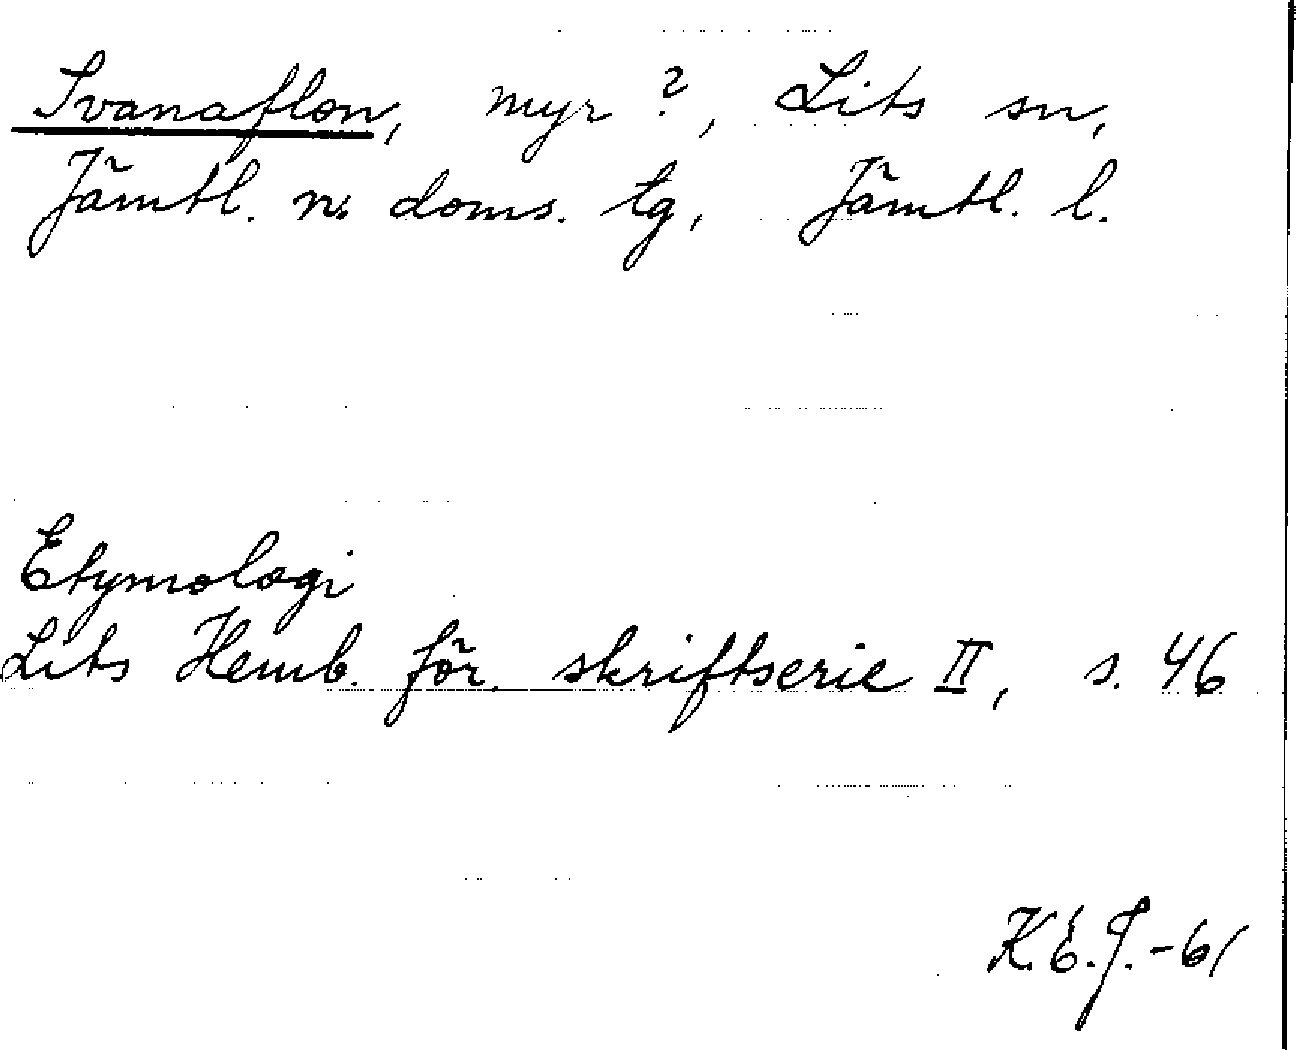 Svanaflon, myr ?, Lits sn,
Jämtl. n. doms. tg, Jämtl. l.
Etymologi
Lits Hemb. för. skriftserie II, s. 46
K.E.J. -61